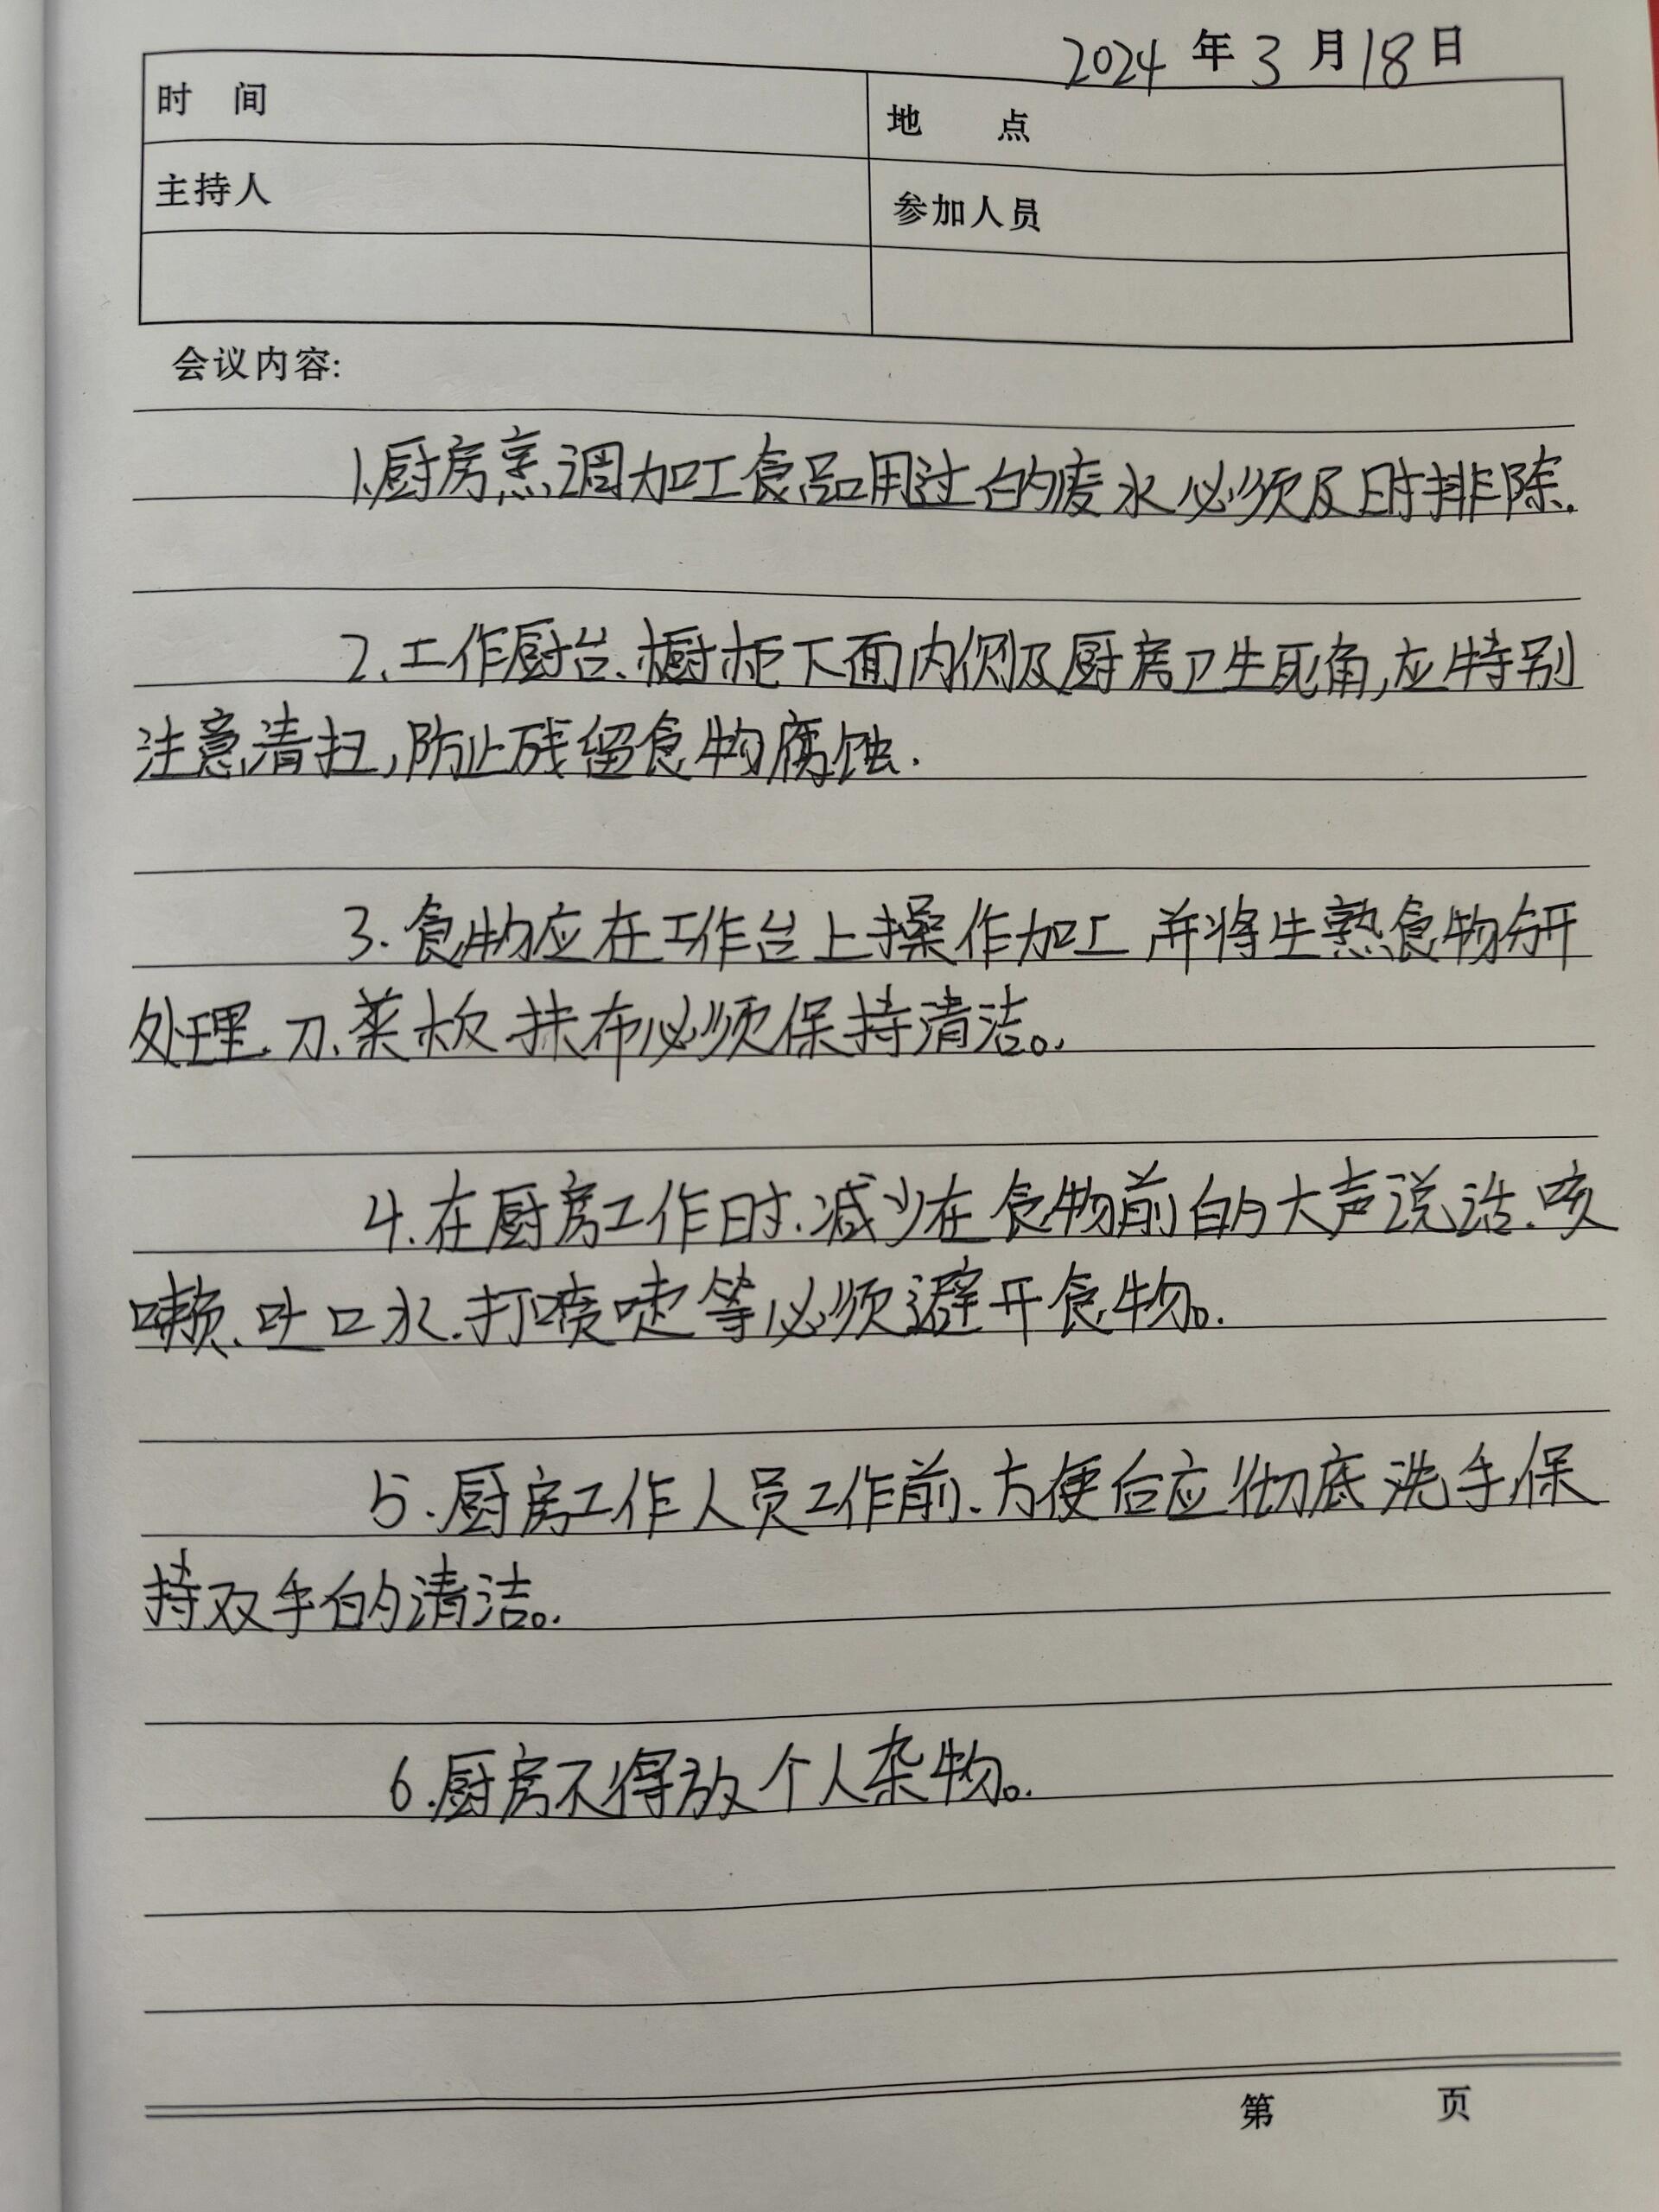 2024年3月18日
时 间
地 点
主持人
参加人员
会议内容:
1.厨房烹调加工食品用过的废水必须及时排除.
2.工作厨台、橱柜下面内侧及厨房卫生死角,应特别
注意清扫,防止残留食物腐蚀.
3.食物应在工作台上操作加工 并将生熟食物分开
处理.刀、菜板 抹布必须保持清洁。.
4.在厨房工作时.减少在食物前的大声说话.咳
嗽、吐口水.打喷嚏等必须避开食物。.
5.厨房工作人员工作前、方便后应彻底洗手,保
持双手的清洁。.
6.厨房不得放个人杂物。.
第 页